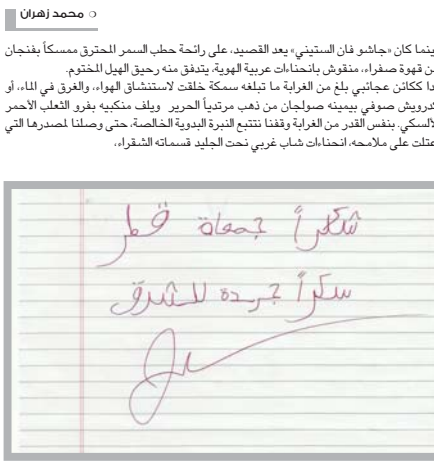 محمد زهران
ينما كان «جاشو فان الستيني» يعد القصيد، على رائحة حطب السمر المحترق ممسكاً بفنجان
ن قهوة صفراء، منقوش بانحناءات عربية الهوية، يتدفق منه رحيق الهيل المختوم.
دا ككائن عجائبي بلغ من الغرابة ما تبلغه سمكة خلقت لاستنشاق الهواء، والغرق في الماء، أو
درويش صوفي بيمينه صولجان من ذهب مرتدياً الحرير ويلف منكبيه بفرو الثعلب الأحمر
لألسكي. بنفس القدر من الغرابة وقفنا نتتبع النبرة البدوية الخالصة، حتى وصلنا لمصدرها التي
عتلت على ملامحه، انحناءات شاب غربي نحت الجليد قسماته الشقراء،
شكراً جمعاة قطر
سكراً جريده للشرق